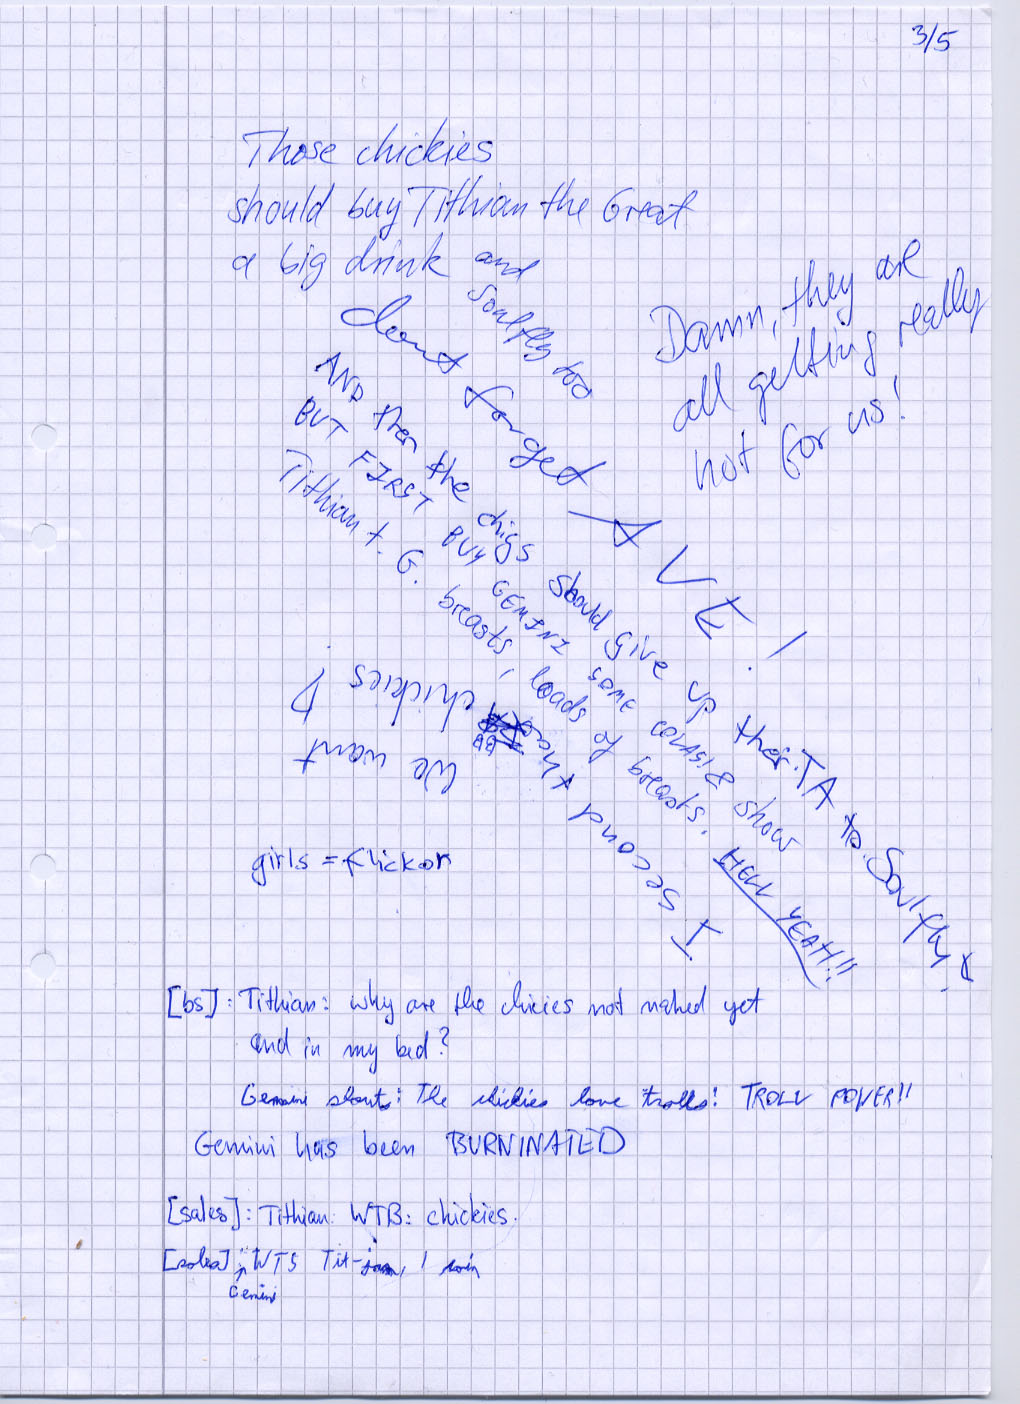 3/5
Those chickies
should buy Tithian the Great
a big drink and
Soulfly too
dont forget AVE!
Damn, they are
all getting really
hot for us!
AND then the chigs should give up ther TA to Soulfly
BUT FIRST BUY GEMINI some COLAS! & show
Tithian t. G. breasts, loads of breasts. HELL YEAH!!
We want
chickies !
I second that
girls = flickor
[bs]: Tithian: why are the chicies not naked yet
and in my bed?
Gemini shouts: The chickies love trolls! TROLL POWER!!
Gemini has been BURNINATED
[sales]: Tithian: WTB: chickies.
[sales]: WTS Tit-
Gemini